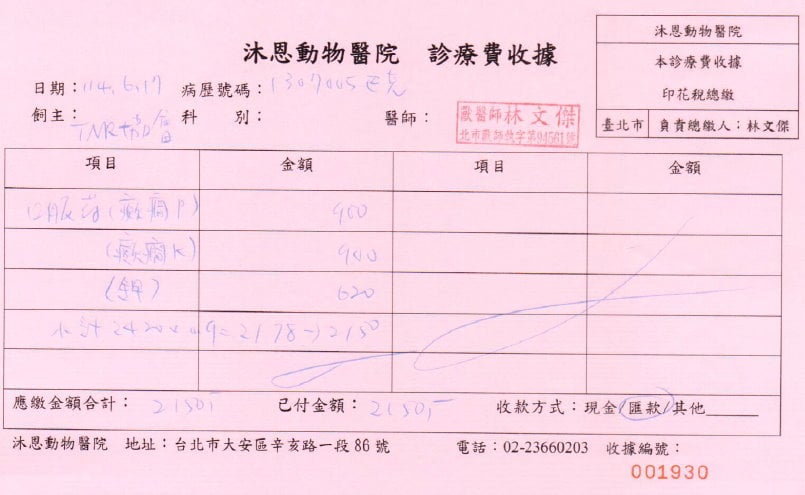 沐恩動物醫院 診療費收據
沐恩動物醫院
本診療費收據
印花稅總繳
臺北市 負責總繳人：林文傑
日期：114.6.17 病歷號碼：1307005巴克
飼主：TNR協會 科 別： 醫師：
獸醫師 林文傑
北市獸師執字第94561號
項目 金額 項目 金額
口服藥(癲癇P) 900
(癲癇K) 900
(鉀) 620
小計2420×0.9=2178→2150
應繳金額合計：2150,- 已付金額：2150,- 收款方式：現金/匯款/其他______
沐恩動物醫院 地址：台北市大安區辛亥路一段86號 電話：02-23660203 收據編號：
001930